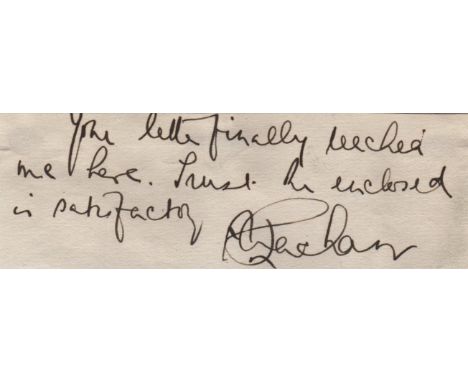 Your letter finally reached
me here. Trust the enclosed
is satisfactory